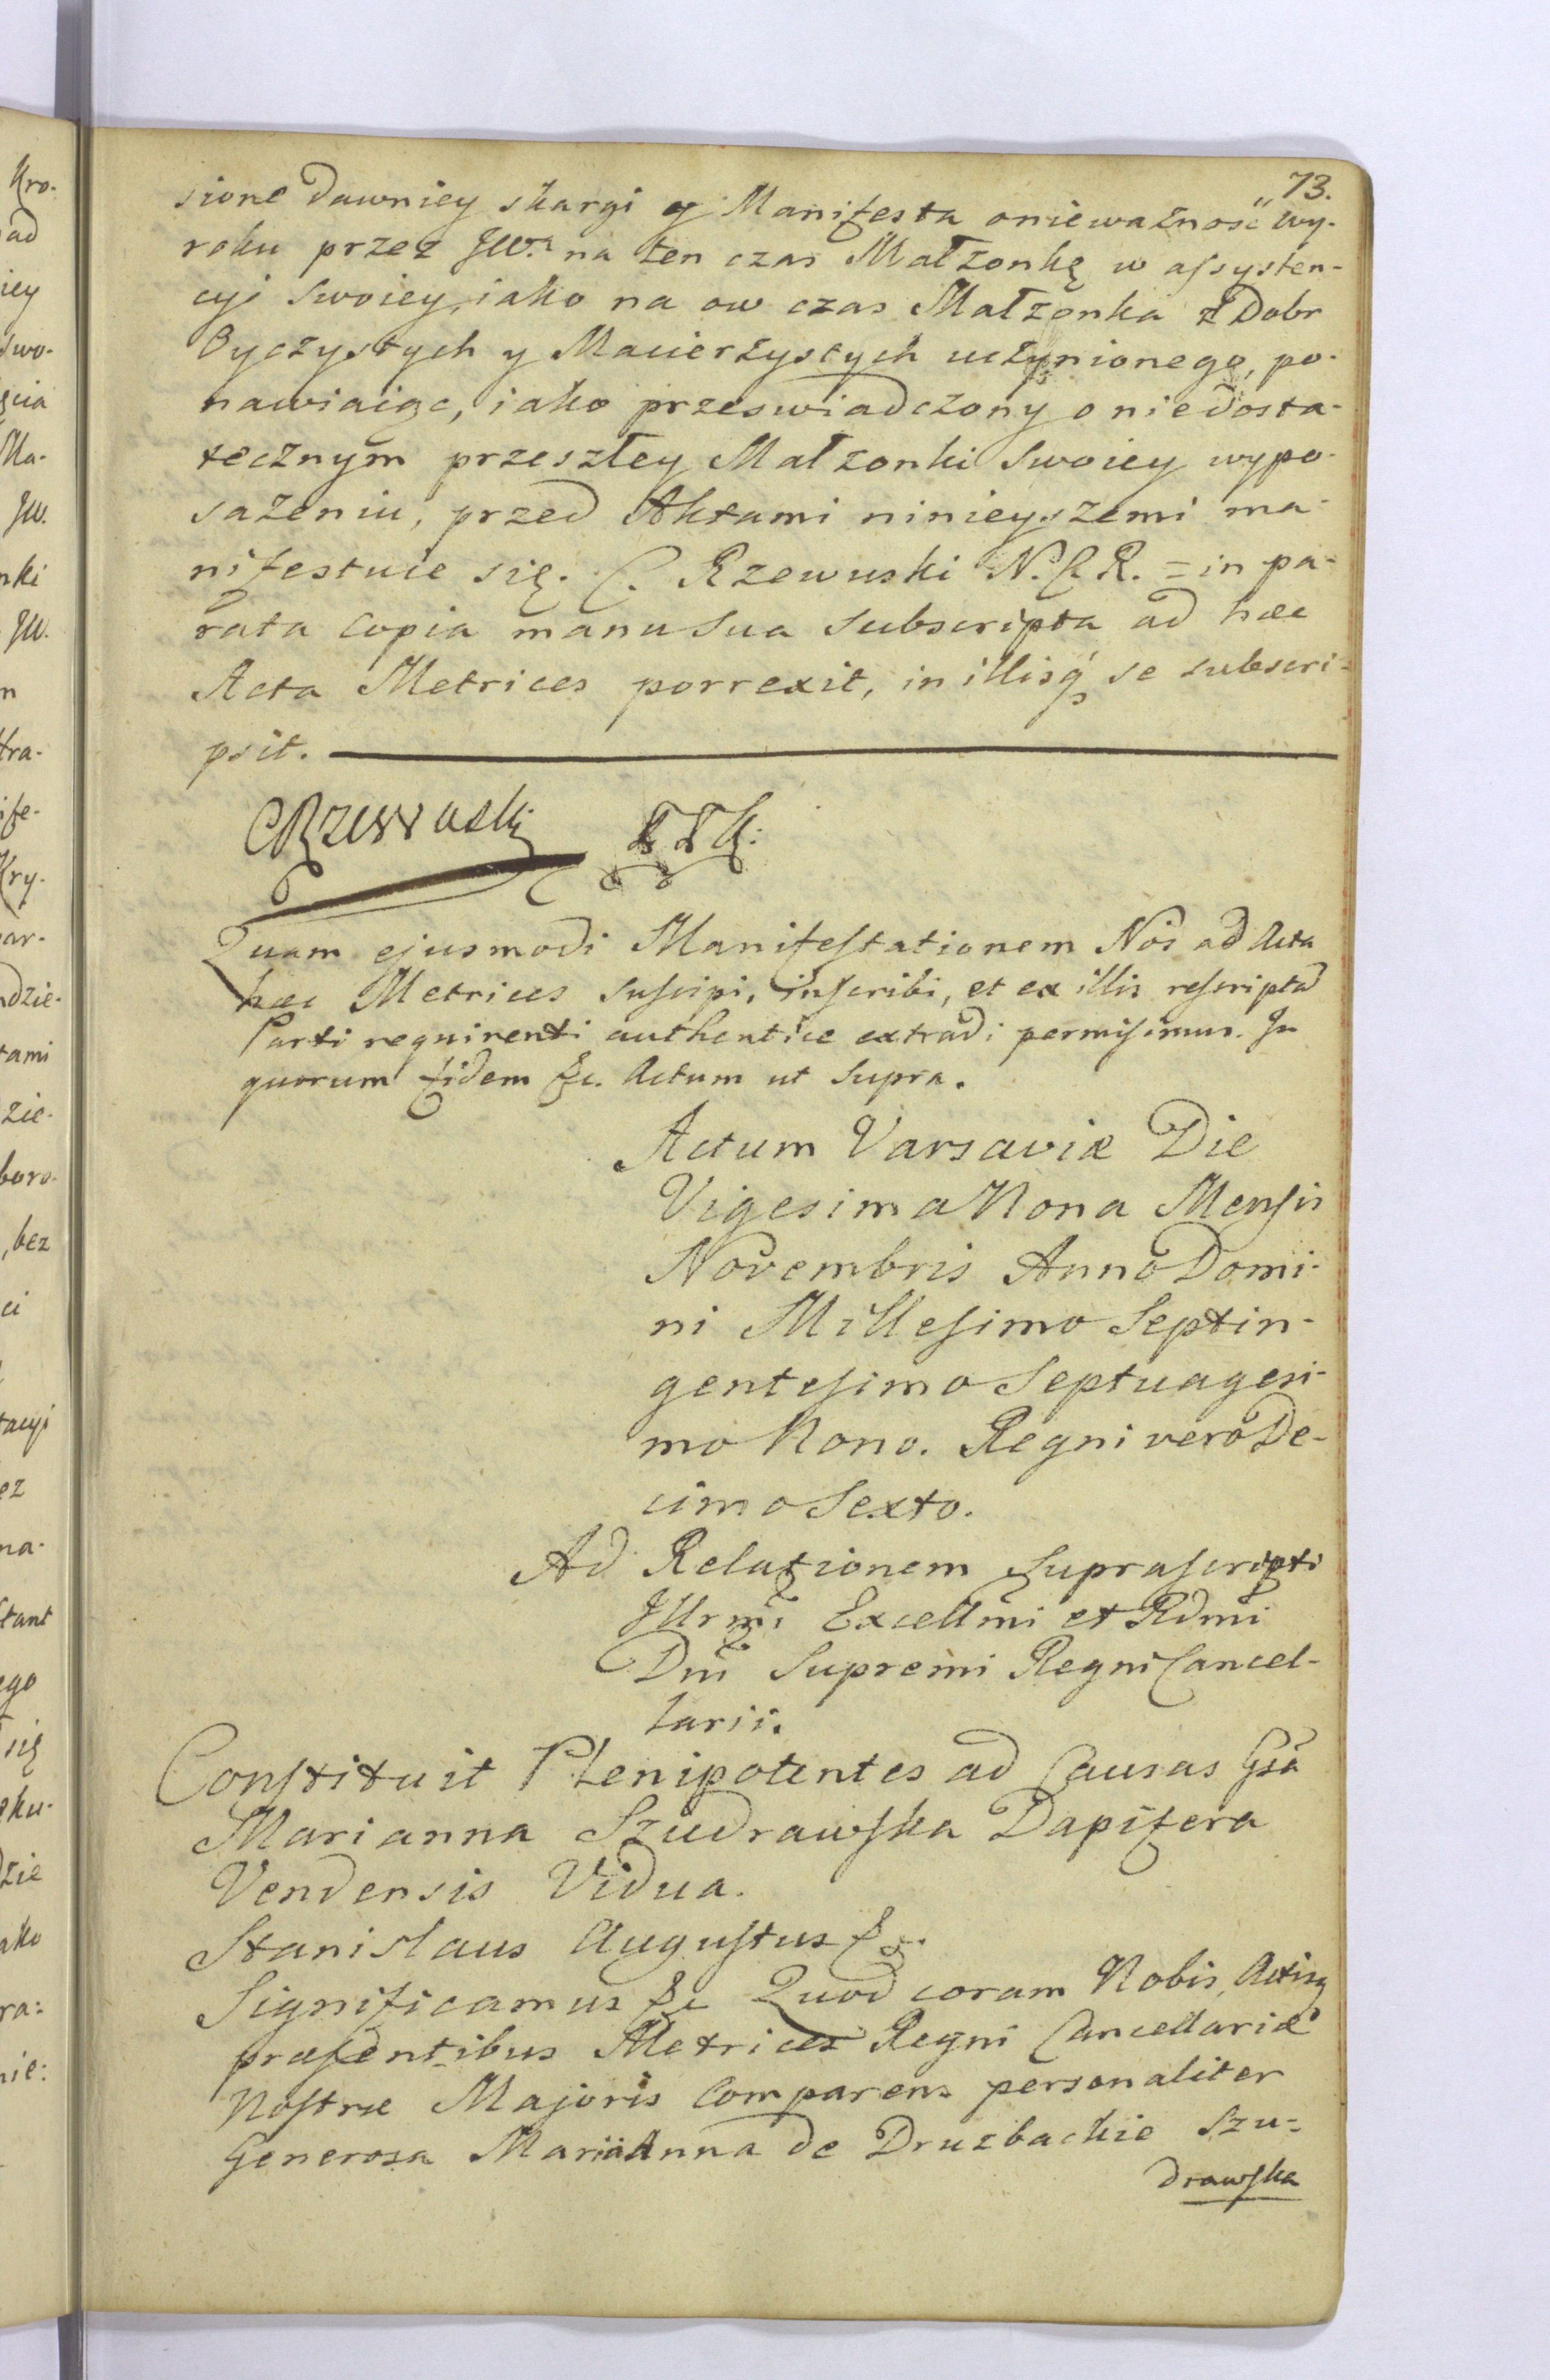 73.
sione dawniey skargi y Manifesta o nieważność wy-
roku przez JW. na ten czas Małżonkę w assysten-
cyi swoiey, iako na ow czas Małżonka z Dobr
Oyczystych y Macierzystych uczynionego, po-
nawiaiąc, iako przeswiadczony o niedosta-
tecznym przeszłey Małżonki swoiey wypo-
sażeniu, przed Aktami ninieyszemi ma-
nifestuie się. C. Rzewuski = in pa-
rata Copia manu sua subscripta ad hæc
Acta Metrices porrexit, in illisq́ se subscri-
psit.
CRzewuski
Quam ejusmodi Manifestationem Nos ad Acta
hæc Metrices suscipi, inscribi, et ex illis rescriptã
Parti requirenti authentice extradi permisimus. In
quorum fidem &c. Actum ut supra.
Actum Varsaviæ Die
Vigesima Nona Mensis
Novembris Anno Domi-
ni Millesimo Septin-
gentesimo Septuagesi-
mo Nono. Regni vero De-
cimo Sexto.
Ad Relationem suprascripti
Illrmi Excellmi et Rdmi
Dni Supremi Regni Cancel-
larii.
Constituit Plenipotentes ad Causas Gsa
Marianna Szudrawska Dapifera
Vendensis Vidua.
Stanislaus Augustus &c.
Significamus &c Quod coram Nobis, Actisq
præsentibus Metrices Regni Cancellariæ
Nostræ Majoris Comparens personaliter
Generosa MariaAnna de Druzbackie Szu-
drawska